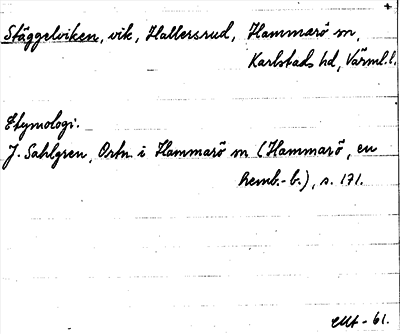 +
Stäggelviken, vik, Hallersrud, Hammarö sn,
Karlstads hd, Värml. l.
Etymologi.
J. Sahlgren, Ortn. i Hammarö sn (Hammarö, en
hemb.-b.), s. 171.
-61.